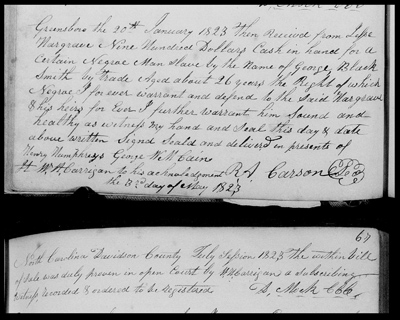 Grensboro the 20th January 1823 then Received from Jesse
Hargrave Nine Hundred Dollars Cash in hand for a
Certain Negroe Man Slave by the Name of George, Black
Smith by trade Aged about 26 years the Right of which
Negroe I forever warrant and defend to the Said Hargrave
& his heirs for Ever I further warrant him Sound and
healthy as witness my hand and Seal this day & date
above written Signd Seald and deliverd in presents of
Henry Humphreys George W McCain
W. H. Carrigan to his acknowledgment R A. Carson
the 3rd day of May 1823
67
North Carolina Davidson County July Session 1823 the within bill
of Sale was duly proven in open Court by W H Carrigan a Subscribing
witness recorded & ordered to be registered D. Mock CCC